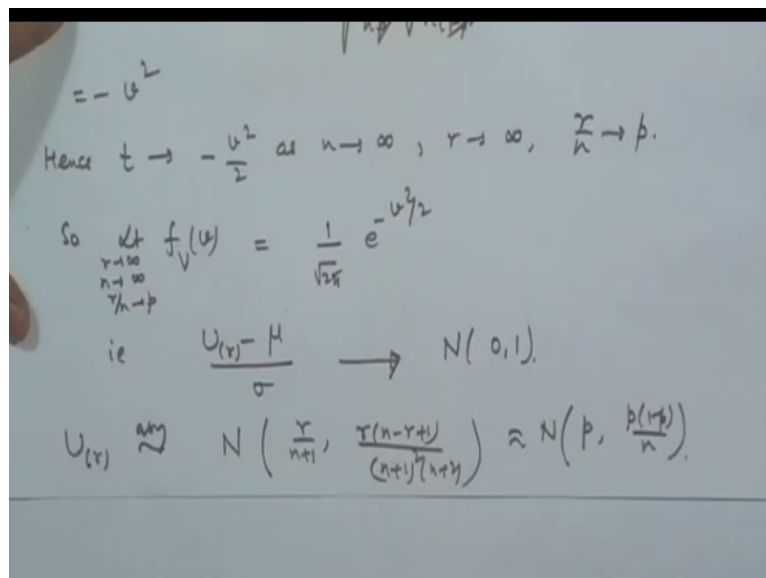 = - v²
Hence t → - v²/2 as n → ∞, r → ∞, r/n → p.
So Lt f_V(v) = 1/√2π e^{-v²/2}
r→∞
n→∞
r/n→p
ie (U_(r) - μ)/σ → N(0,1).
U_(r) asy ~ N( r/(n+1), r(n-r+1)/((n+1)²(n+2)) ) ≈ N( p, p(1-p)/n ).